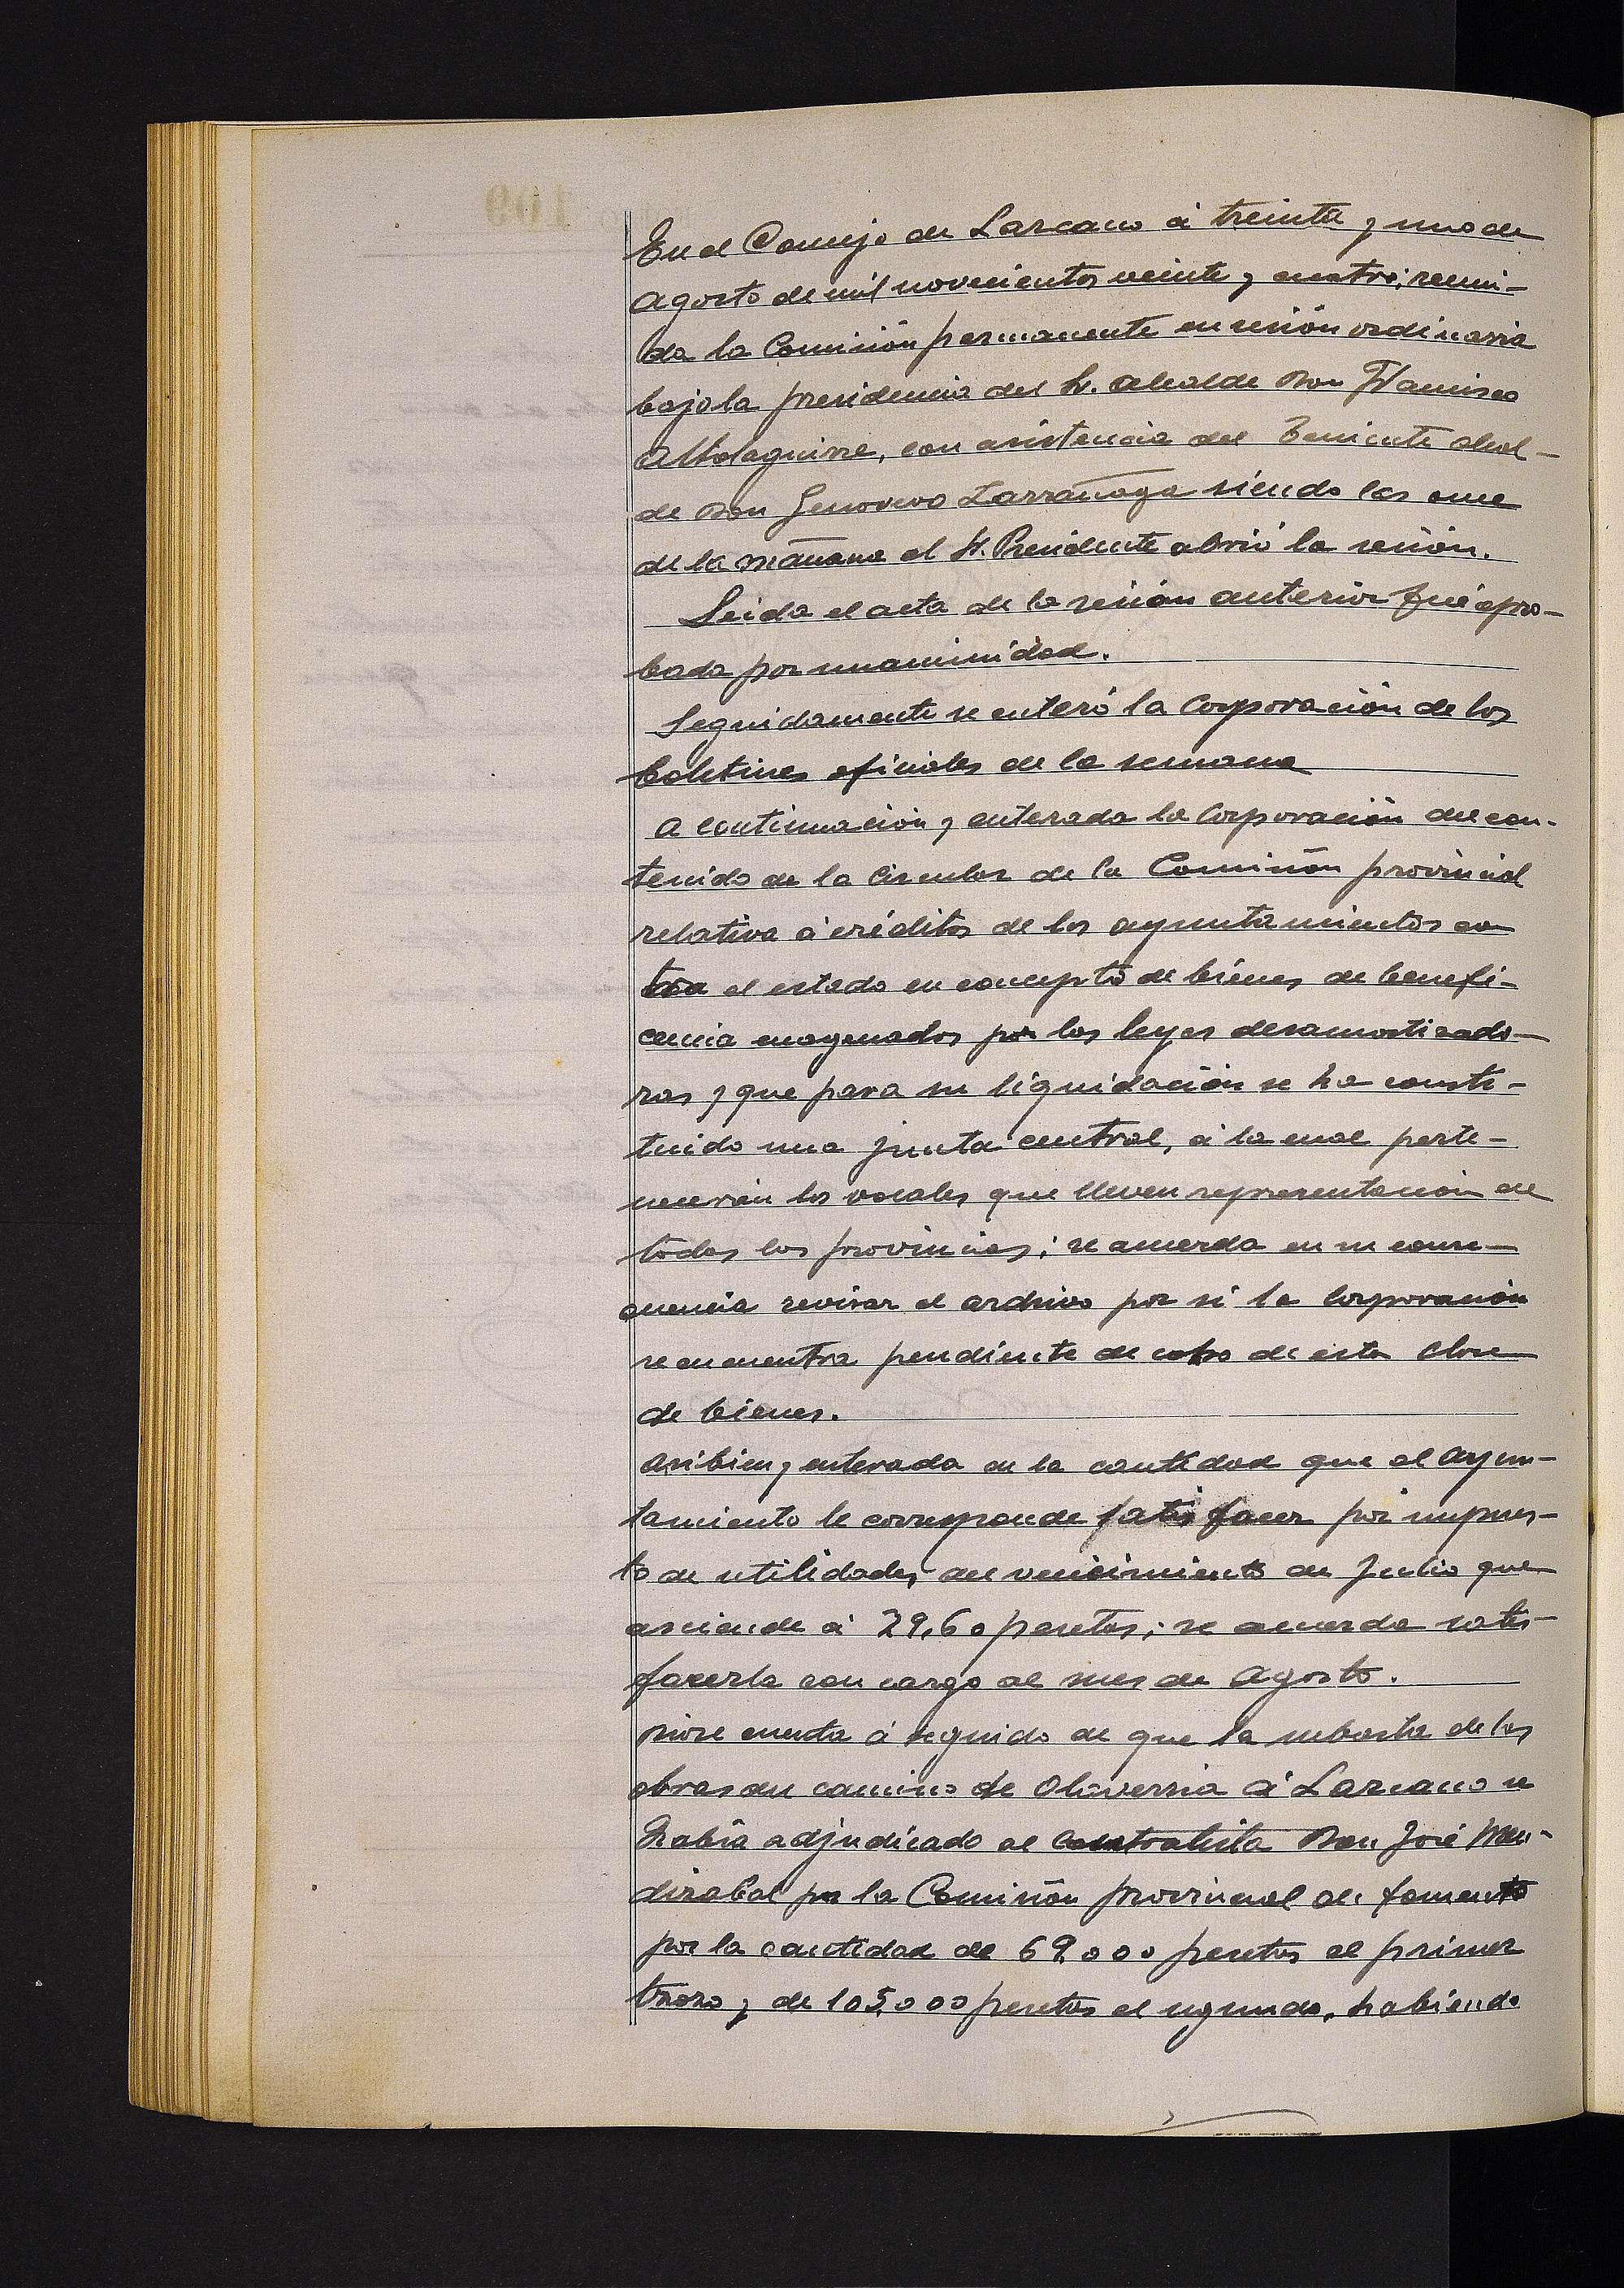 En el Concejo de Lazcano á treinta y uno de
Agosto de mil novecientos veinte y cuatro; reuni-
da la Comisión permanente en sesión ordinaria
bajo la presidencia del Sr. Alcalde Don Francisco
Altolaguirre, con asistencia del Teniente Alcal-
de Don Genovevo Larrañaga siendo las once
de la mañana el Sr. Presidente abrió la sesión.
Leida el acta de la sesión anterior fué apro-
bada por unanimidad.
Seguidamente se enteró la Corporación de los
boletines oficiales de la semana
A continuación y enterada la Corporación del con-
tenido de la Circular de la Comisión provincial
relativa á créditos de los ayuntamientos con
tra el estado en concepto de bienes de benefi-
cencia enagenados por las leyes desamortizado-
ras y que para su liquidación se ha consti-
tuido una junta central, á la cual perte-
necerán los vocales que lleven representación de
todas las provincias; se acuerda en su conse-
cuencia revisar el archivo por si la Corporación
se encuentra pendiente de cobro de esta clase
de bienes.
Asibien y enterada en la cantidad que al Ayun-
tamiento le corresponde satisfacer por impues-
to de utilidades del vencimiento de Julio que
asciende á 29,60 pesetas; se acuerda satis-
facerla con cargo al mes de Agosto.
Diose cuenta á seguido de que la subasta de las
obras del camino de Olaverria á Lazcano se
habia adjudicado al Contratista Don José Men-
dizabal por la Comisión provincial de fomento
por la cantidad de 69.000 pesetas el primer
trozo y de 105.000 pesetas el segundo, habiendo